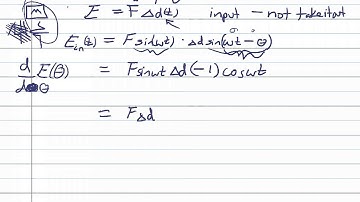 m E = F Δd(t) input - not take it out
s E_in(t) = F sin(ωt) · Δd sin(ωt - θ)
d/dθ E(θ) = F sin ωt Δd (-1) cos ωt
= F Δd